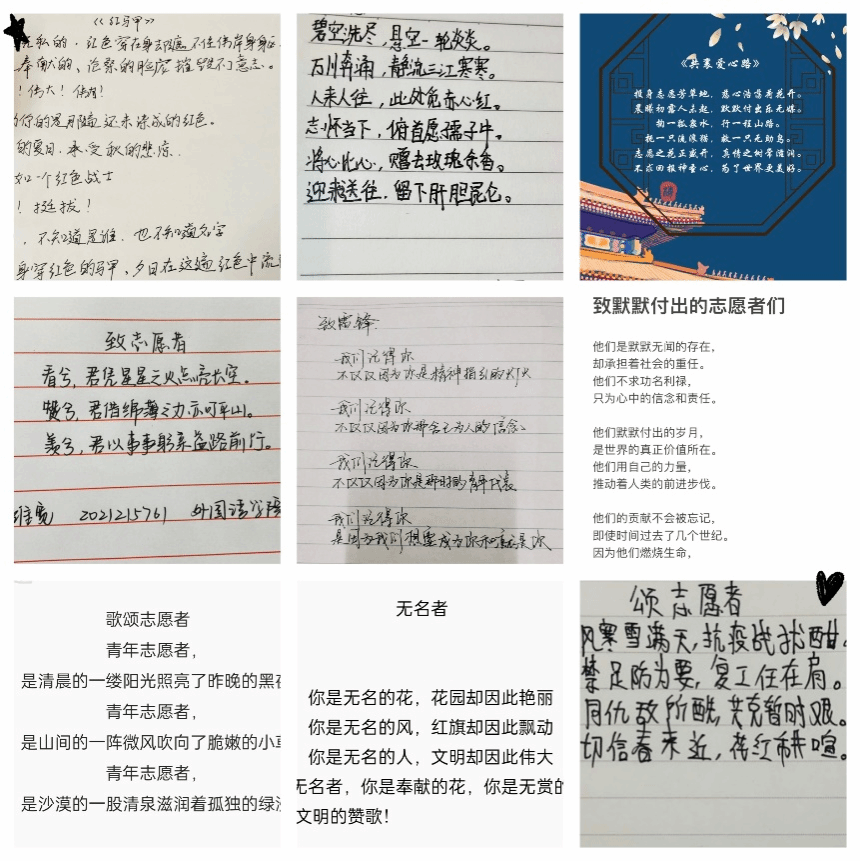 《红马甲》
无私的，红色穿在身却遮不住伟岸身躯
奉献的、沧桑的脸庞摧毁不了意志。
！伟大！伟大！
你的是用
还未读成的红色。
的夏日，承受秋的悲凉
如一个红色战士
！挺拔！
，不知道是谁，也不知道名字
身穿红色的马甲、夕日在这遍红色中流
碧空洗尽，悬空一轮炎炎。
万川奔涌，静流三江寒寒。
人来人往，此处觅赤心红。
志怀当下，俯首愿孺子牛。
将心比心，赠去玫瑰余香。
迎来送往，留下肝胆昆仑。
《共襄爱心路》
投身志愿芳草地，慈心浩荡看花开。
晨曦初露人未起，默默付出乐无殊。
掬一瓢泉水，行一程山路。
抚一只流浪猫，救一只无助鸟。
志愿之花正盛开，真情之树常滋润。
不求回报神圣心，为了世界更美好。
致志愿者
看兮，君凭星星之火点亮长空。
赞兮，君借绵薄之力亦可平山。
美兮，君以事事躬亲益路前行。
2021215761 外国语学院
致雷锋
我们记得你
不仅仅因为你是精神指引的灯火
我们记得你
不仅仅因为你那舍己为人的信念。
我们记得你
不仅仅因为你是那时的年代表
我们记得你
是因为我们想要成为你和就是你
致默默付出的志愿者们
他们是默默无闻的存在，
却承担着社会的重任。
他们不求功名利禄，
只为心中的信念和责任。
他们默默付出的岁月，
是世界的真正价值所在。
他们用自己的力量，
推动着人类的前进步伐。
他们的贡献不会被忘记，
即使时间过去了几个世纪。
因为他们燃烧生命，
歌颂志愿者
青年志愿者，
是清晨的一缕阳光照亮了昨晚的黑夜
青年志愿者，
是山间的一阵微风吹向了脆嫩的小草
青年志愿者，
是沙漠的一股清泉滋润着孤独的绿洲
无名者
你是无名的花，花园却因此艳丽
你是无名的风，红旗却因此飘动
你是无名的人，文明却因此伟大
无名者，你是奉献的花，你是无赏的
文明的赞歌！
颂志愿者
风寒雪满天，抗疫战犹酣。
禁足防为要，复工任在肩。
同仇敌所酰，共克暂时艰。
切信春来近，花红市井喧。